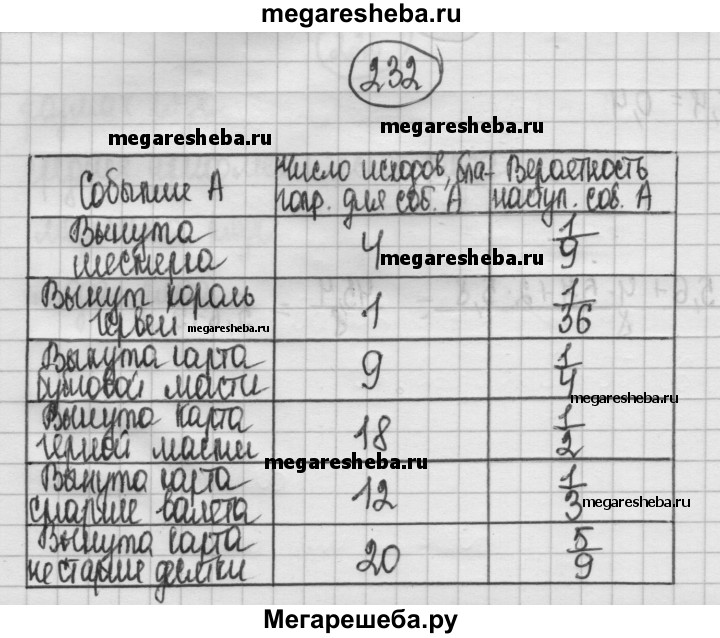 megaresheba.ru
232
megaresheba.ru
megaresheba.ru
Событие А
Число исходов, бла-
гопр. для соб. А
Вероятность
наступ. соб. А
Вынута
шестерка
4
1/9
megaresheba.ru
Вынут король
червей
megaresheba.ru
1
1/36
Вынута карта
бубновой масти
9
1/4
megaresheba.ru
Вынута карта
черной масти
18
1/2
megaresheba.ru
Вынута карта
старше валета
12
1/3
megaresheba.ru
Вынута карта
не старше девятки
20
5/9
Мегарешеба.ру